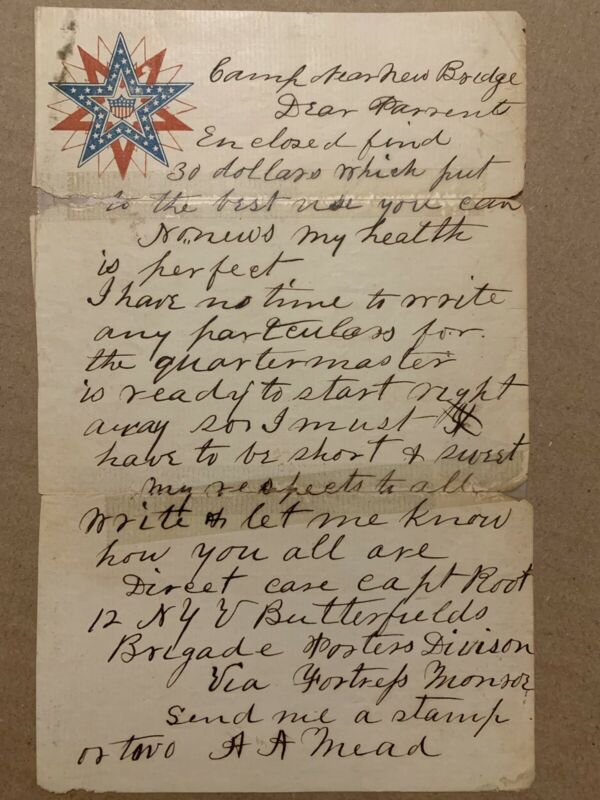 Camp Near New Bridge
Dear Parrents
Enclosed find
30 dollars which put
to the best use you can
No news my health
is perfect
I have no time to write
any particulars for
the quartermaster
is ready to start right
away so I must
have to be short & sweet
my respects to all
write & let me know
how you all are
Direct care capt Root
12 N Y V Butterfields
Brigade Porters Divison
Via Fortress Monroe
Send me a stamp
or two A A Mead